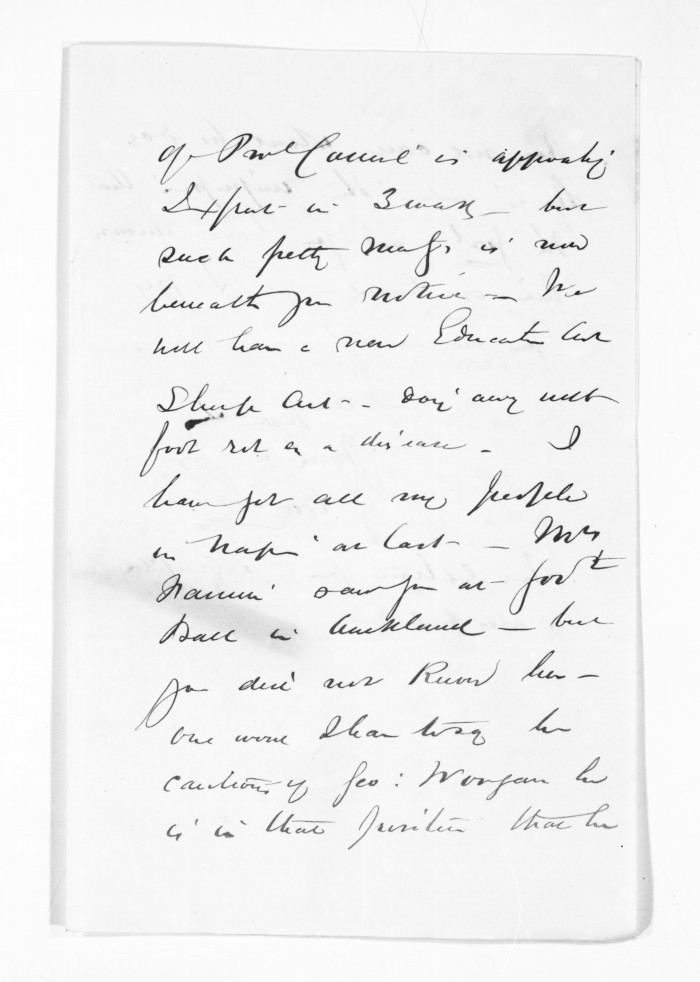 of Provl Council is approaching
I expect in 3 weeks - but
such petty matters is now
beneath your notice - We
will have a new Education Act
Sheep Act - doing away with
foot rot as a disease - I
have got all my people
in Napier at last - Mrs
Fannin saw you at Govt
Ball in Auckland - but
you did not know her -
one word I have to say be
cautious of Geo: Worgan he
is in that position that he